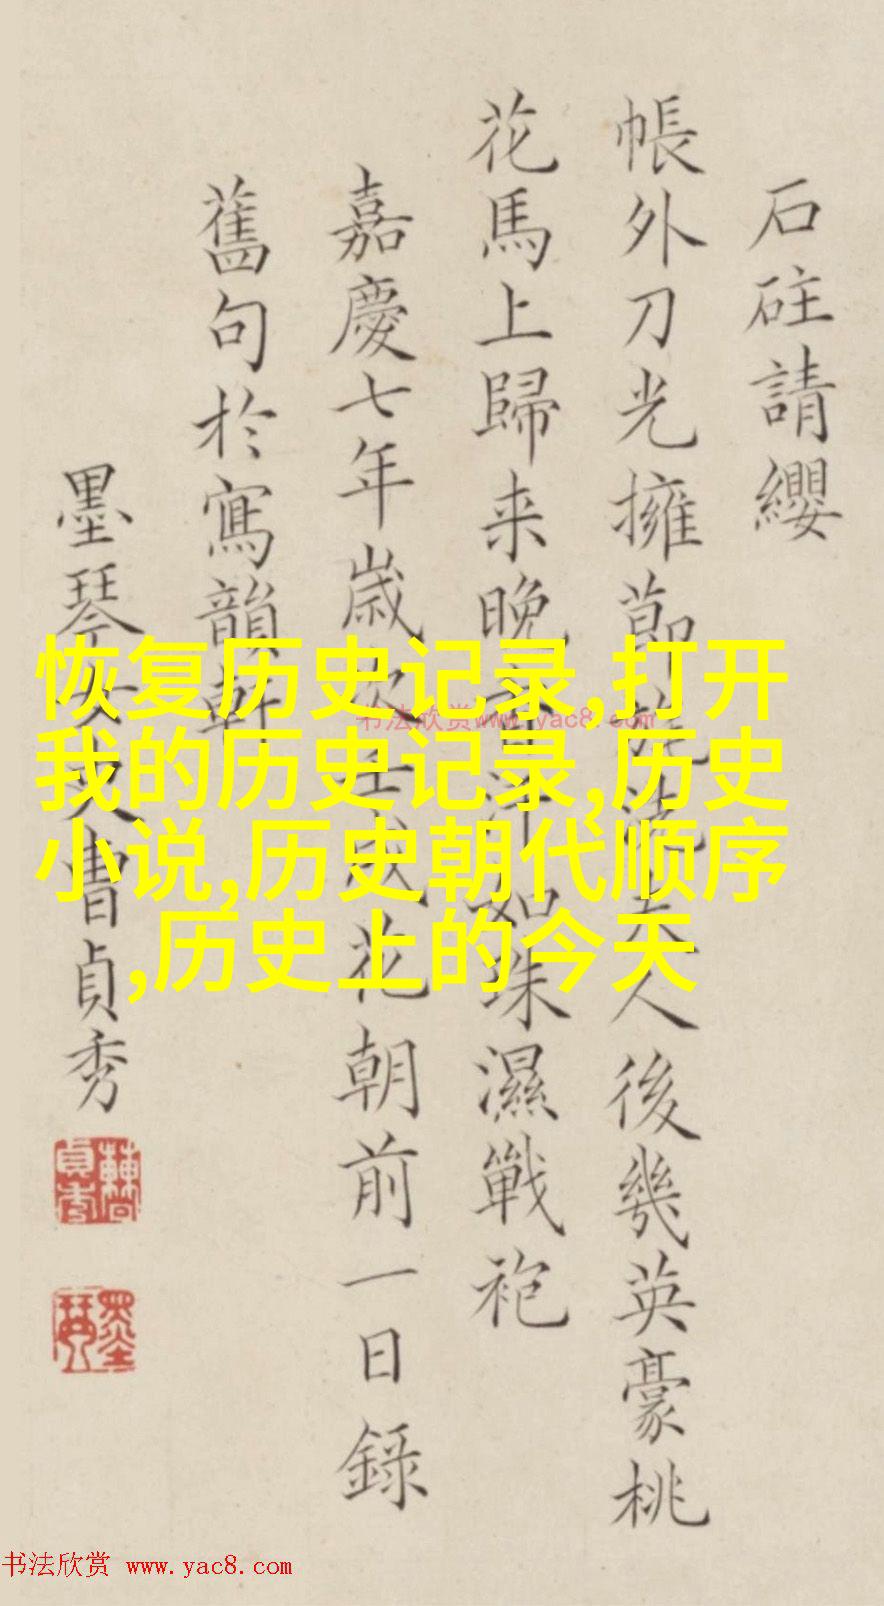 石砫請纓
帳外刀光擁節旄洗夫人後幾英豪桃
花馬上歸来晚香汗如珠濕戰袍
嘉慶七年歲次壬戌花朝前一日錄
舊句於寫韻軒
墨琴女史曹貞秀
恢复历史记录,打开
我的历史记录,历史
小说,历史朝代顺序
,历史上的今天
书法欣赏 www.yac8.com
书法欣赏 www.yac8.com